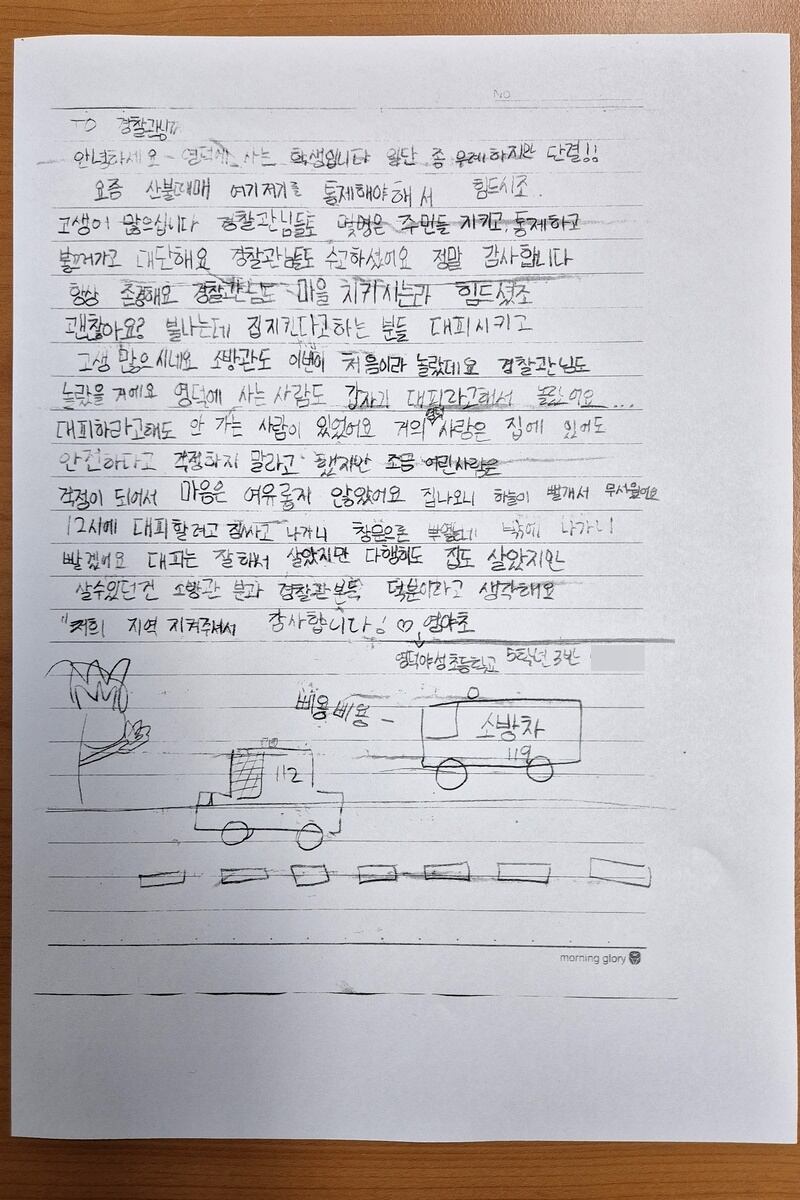 No
TO 경찰관님께
안녕하세요 영덕에 사는 학생입니다 일단 좀 무례하지만 단결!!
요즘 산불때매 여기저기를 통제해야해서 힘드시조.
고생이 많으십니다 경찰관님들도 몇명은 주민들 지키고, 통제하고
불끄러가고 대단해요 경찰관님들도 수고하셨어요 정말 감사합니다
항상 존경해요 경찰관님도 마을 지키시는라 힘드셨조
괜찮아요? 불나는데 집지킨다고하는 분들 대피시키고
고생 많으시네요 소방관도 이번이 처음이라 놀랐데요 경찰관님도
놀랐을 거에요 영덕에 사는 사람도 갑자기 대피라고해서 놀랐어요...
대피하라고해도 안 가는 사람이 있었어요 거의 사람은 집에 있어도
안전하다고 걱정하지 말라고 했지만 조금 어린사람은
걱정이 되어서 마음은 여유롭지 않았어요 집나오니 하늘이 빨개서 무서웠어요
12시에 대피할려고 짐싸고 나가니 창문으론 밖에 나가니
빨겠어요 대피는 잘해서 살았지만 다행히도 집도 살았지만
살수있던건 소방관 분과 경찰관분득 덕분이라고 생각해요
"저희 지역 지켜주셔서 감사합니다! ♡ 영야초
영덕야성초등학교 5학년 3반
삐용삐용-
소방차
119
112
morning glory